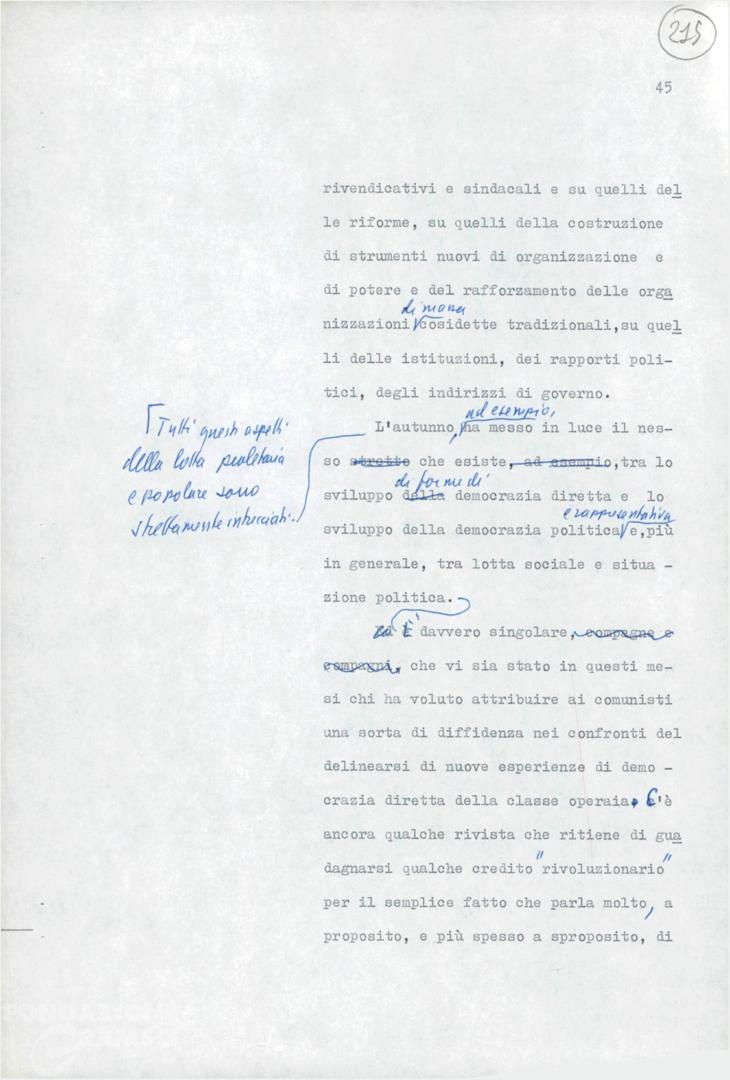 215
45
rivendicativi e sindacali e su quelli del
le riforme, su quelli della costruzione
di strumenti nuovi di organizzazione e
di potere e del rafforzamento delle orga
di massa
nizzazioni cosidette tradizionali, su quel
li delle istituzioni, dei rapporti poli-
tici, degli indirizzi di governo.
ad esempio,
L'autunno, ha messo in luce il nes-
so stretto che esiste, ad esempio, tra lo
di forme di
sviluppo della democrazia diretta e lo
e rappresentativa
sviluppo della democrazia politica e, più
in generale, tra lotta sociale e situa -
zione politica.
Tutti questi aspetti
della lotta proletaria
e popolare sono
strettamente intrecciati.
Ed È davvero singolare, compagne e
compagni, che vi sia stato in questi me-
si chi ha voluto attribuire ai comunisti
una sorta di diffidenza nei confronti del
delinearsi di nuove esperienze di demo -
crazia diretta della classe operaia. C'è
ancora qualche rivista che ritiene di gua
dagnarsi qualche credito "rivoluzionario"
per il semplice fatto che parla molto, a
proposito, e più spesso a sproposito, di
FONDAZIONE
GRAMSCI